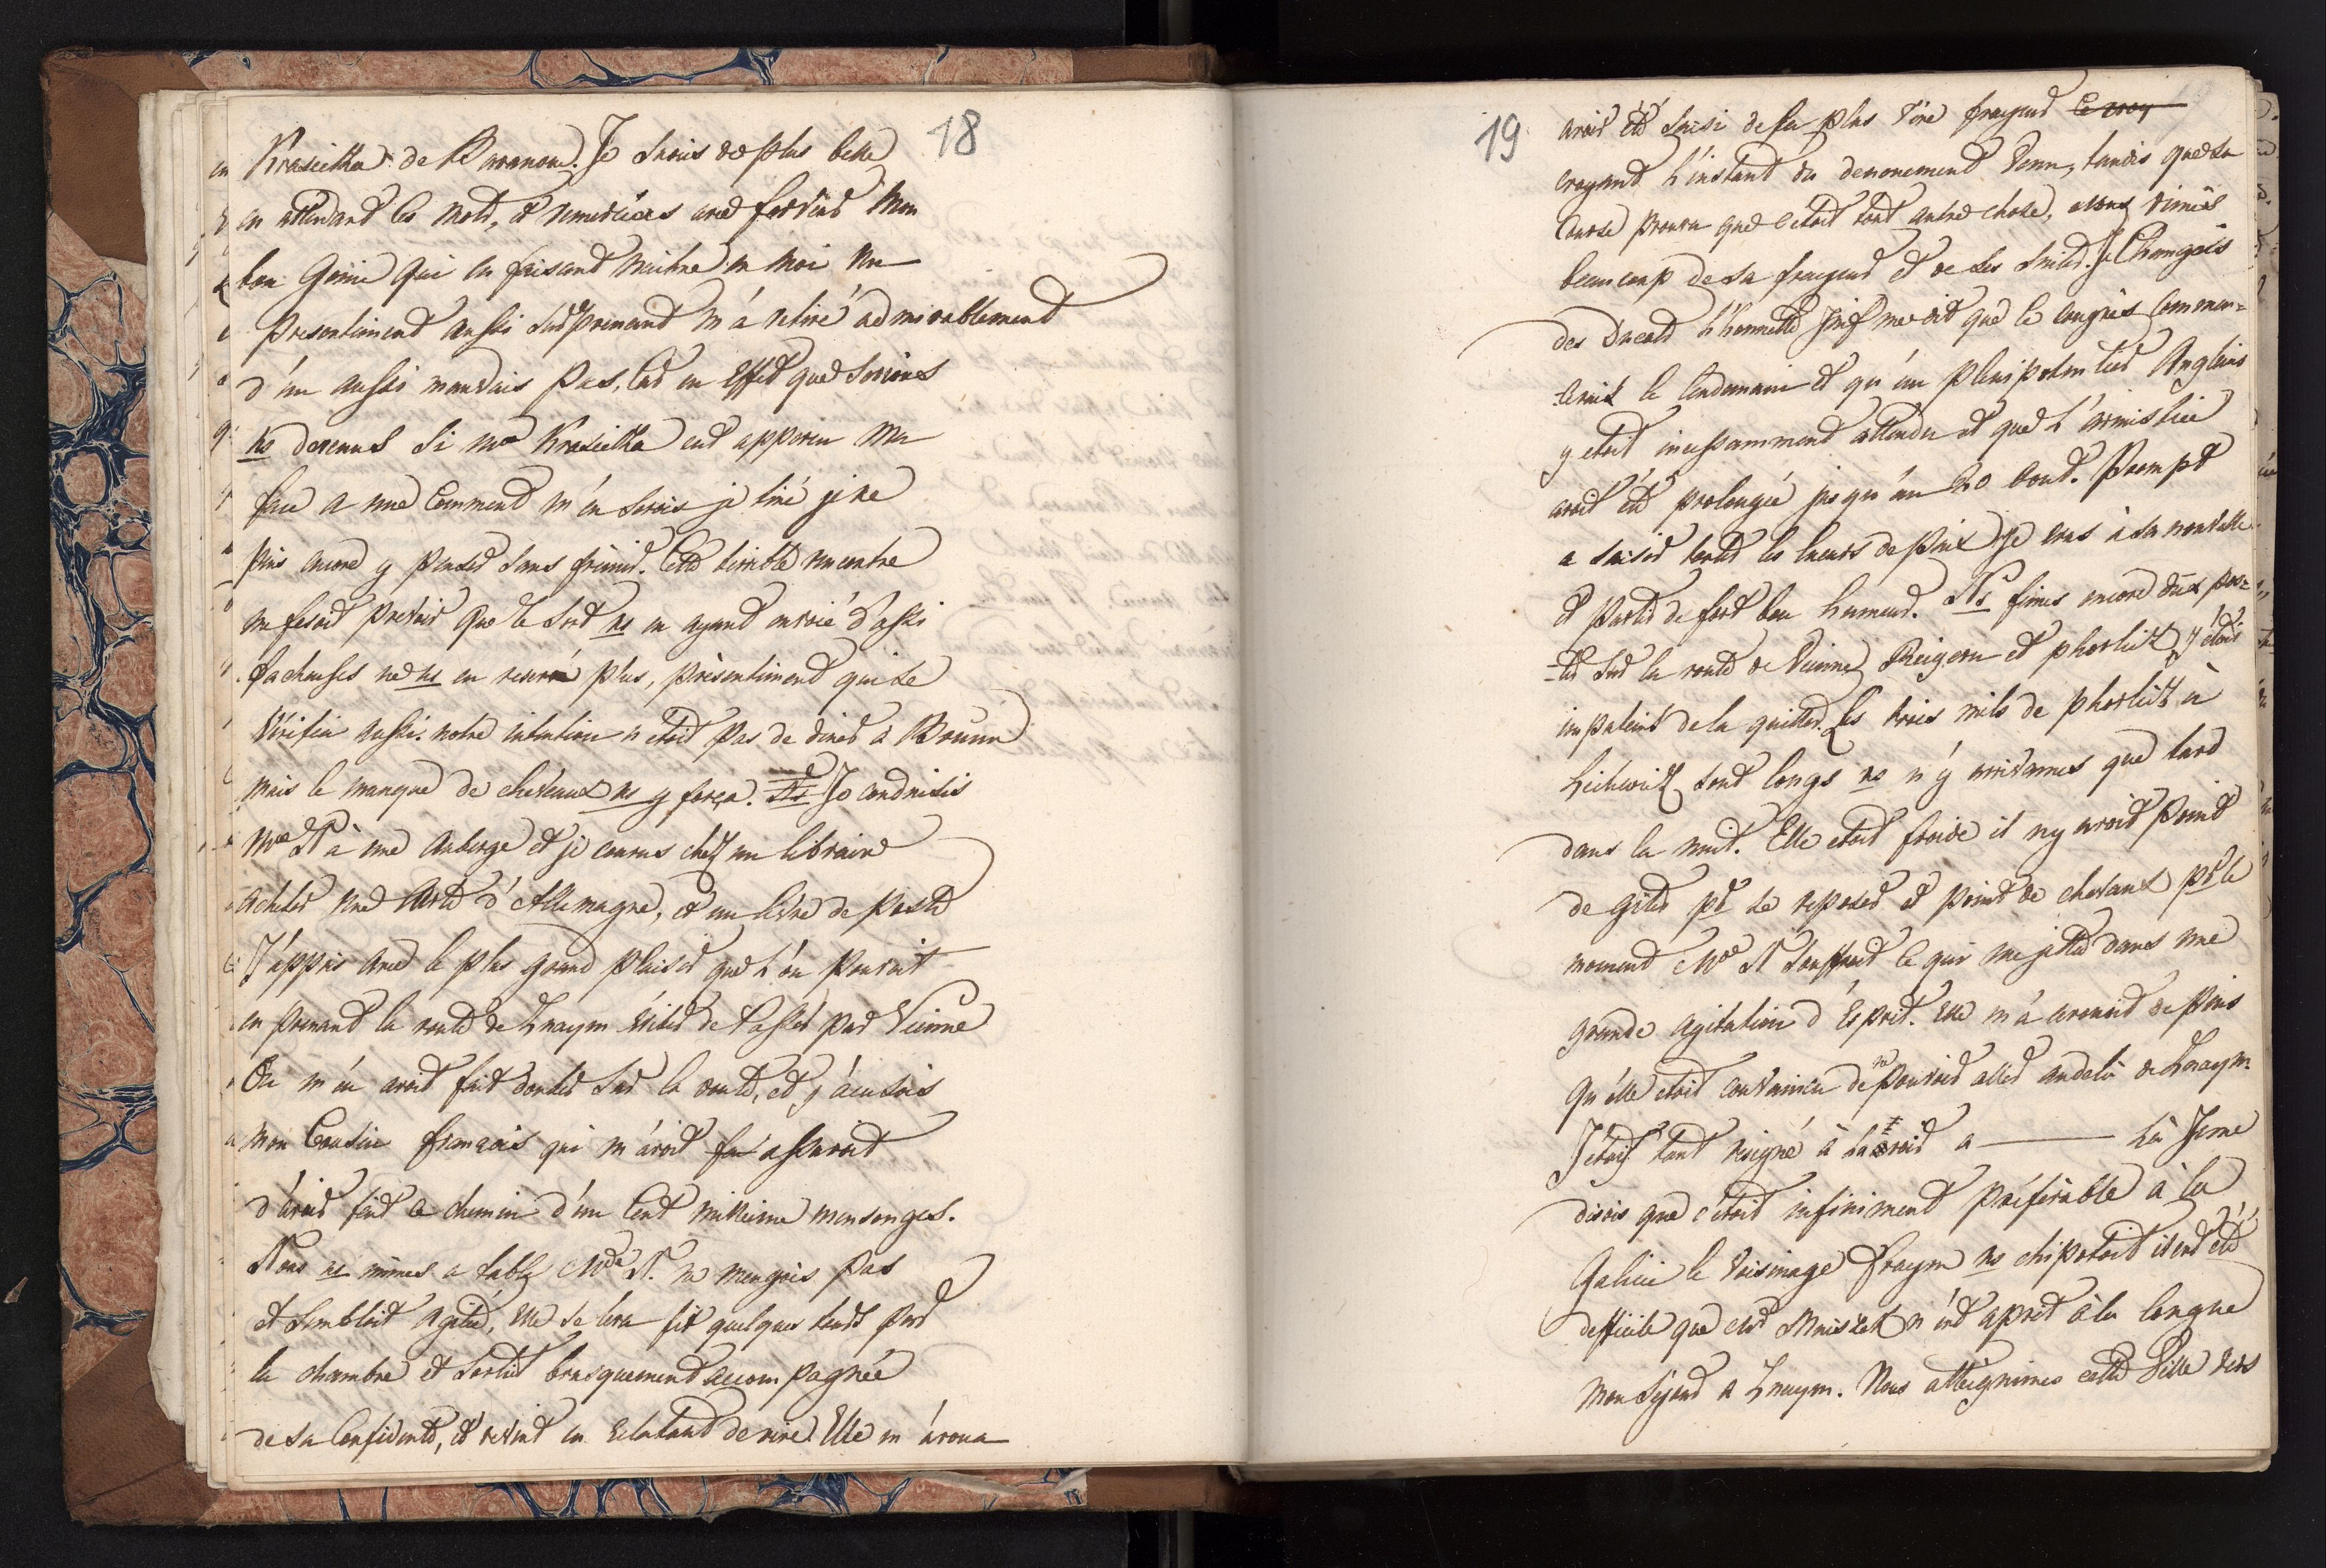 18
Krasicka de Baranow. Je Suois de plus belle
en attendant ces mots, et remerciois avec ferveur Mon
bon Genie qui en faisant naitre en moi un
Presentiment aussi surprenant m'a retiré admirablement
d'un aussi mauvais pas, Car en Effet que serions
ns devenus Si Me Krasicka eut apperçu Ma
face a nue Comment m'en serois je tiré je ne
puis encore y penser sans frémir. Cette terrible rencontre
me fesoit prevoir que le Sort ns en ayant envoié d'assi
facheuses ne ns en reserv plus, présentiment qui se
Vérifia aussi. notre intention n'etoit pas de diner a Brünn
mais le manque de chevaux ns y força. Ns Je conduisis
Me N à une auberge et je courus chez un libraire
acheter une Carte d'Allemagne, et un livre de poste
J'appris avec le plus grand plaisir que l'on pouvoit
en prenant la route de Znaym éviter de passer par Vienne
On m'en avoit fait douter sur la route, et j'acusois
mon Cousin français qui m'avoit fai assuroit
d'avoir fait ce chemin d'un Cent millième mensonges.
Nous ns mimes a table Mde N. ne mangois pas
et sembloit agitée, elle se leva fit quelques tours par
la chambre et sortit brusquement accompagnée
de sa Confidente, et revint en Eclatant de rire. Elle m'avoua
19
avoir été saisi de la plus vive frayeur Ce croy
croyant l'instant du denouement venu, tandis que la
Cause prouva que c'etoit tout autre chose, ns rimes
beaucoup de sa frayeur et de ses suites. Je Changeois
des Ducats l'honnette Juif me dit que le Congrès Commen=
=ceroit le lendemain et qu'un Plenipotentier Anglais
y etoit incessamment attendu et que l'armistice
avoit été prolongée jusqu'au 20 aout. Prompt
a saisir toutes les lueurs de paix je crus à sa nouvelle
et partis de fort bon humeur. Ns fimes encore deux pos=
=tes sur la route de Vienne, Reigern et phorlitz, j'étois
impatient de la quitter. Les trois mils de phorlitz à
Lechwitz sont longs ns n'y arrivames que tard
dans la nuit. Elle etoit froide il n'y avoit point
de gites pr se reposer et point de chevaux pr le
moment Me N souffroit ce qui me jetta dans une
grande agitation d'Esprit. Elle m'avouoit depuis
qu'elle etoit convaincu de ne pouvoir aller audela de Znaym.
J'étois tout résigné à la voir a ——— là Je me
disois que c'étoit infiniment préférable à la
Galicie le Voisinage Fraym ns chipotoit il eut été
difficile que Mr Mniszek n'eut apris à la longue
mon Séjour a Znaym. Nous atteignimes cette Ville vers